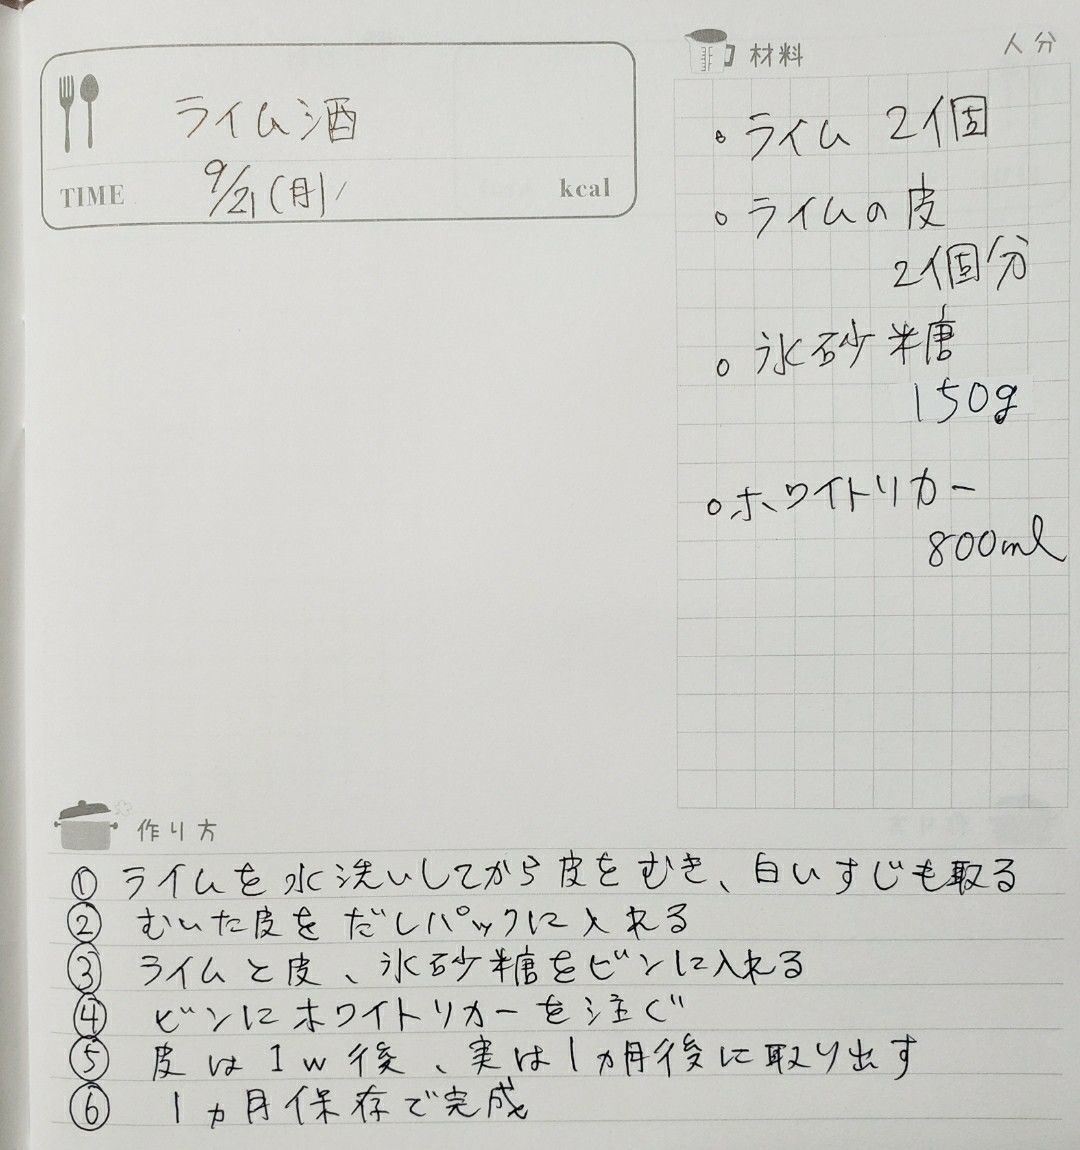 ライム酒
TIME 9/21(月) kcal
材料 人分
ライム 2個
ライムの皮
2個分
氷砂糖
150g
ホワイトリカー
800ml
作り方
① ライムを水洗いしてから皮をむき、白いすじも取る
② むいた皮をだしパックに入れる
③ ライムと皮、氷砂糖をビンに入れる
④ ビンにホワイトリカーを注ぐ
⑤ 皮は1w後、実は1ヵ月後に取り出す
⑥ 1ヵ月保存で完成